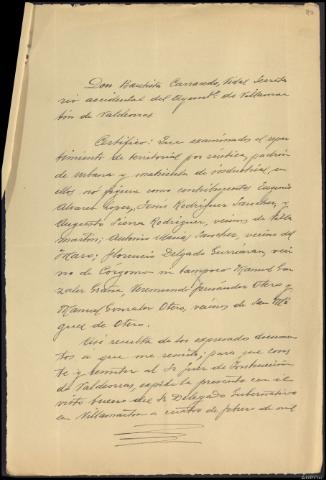 Don Bautista Carracedo Vidal Secreta
rio accidental del Ayuntº de Villamar
tín de Valdeorras
Certifico: Que examinados el repar
timiento de territorial por rústica, padrón
de urbana y matrícula de industrial, en
ellos no figura como contribuyentes Eugenio
Alvarez López, Jesús Rodríguez Sanchez, y
Augusto Sierra Rodríguez, vecinos de Villa
martín; Antonio Macías Sanchez, vecino del
; Florencio Delgado Gurriarán, veci
no de Corgomo ni tampoco Manuel Gon
zalez, Bremundo Fernández Otero y
Manuel Gonzalez Otero, vecinos de San Mi
guel de Otero.
Así resulta de los expresados documen
tos a que me remito; para que cons
te y remitir al Sr Juez de Instrucción
de Valdeorras, expido la presente con el
visto bueno del Sr Delegado Gubernativo
en Villamartín a cuatro de febrero de mil